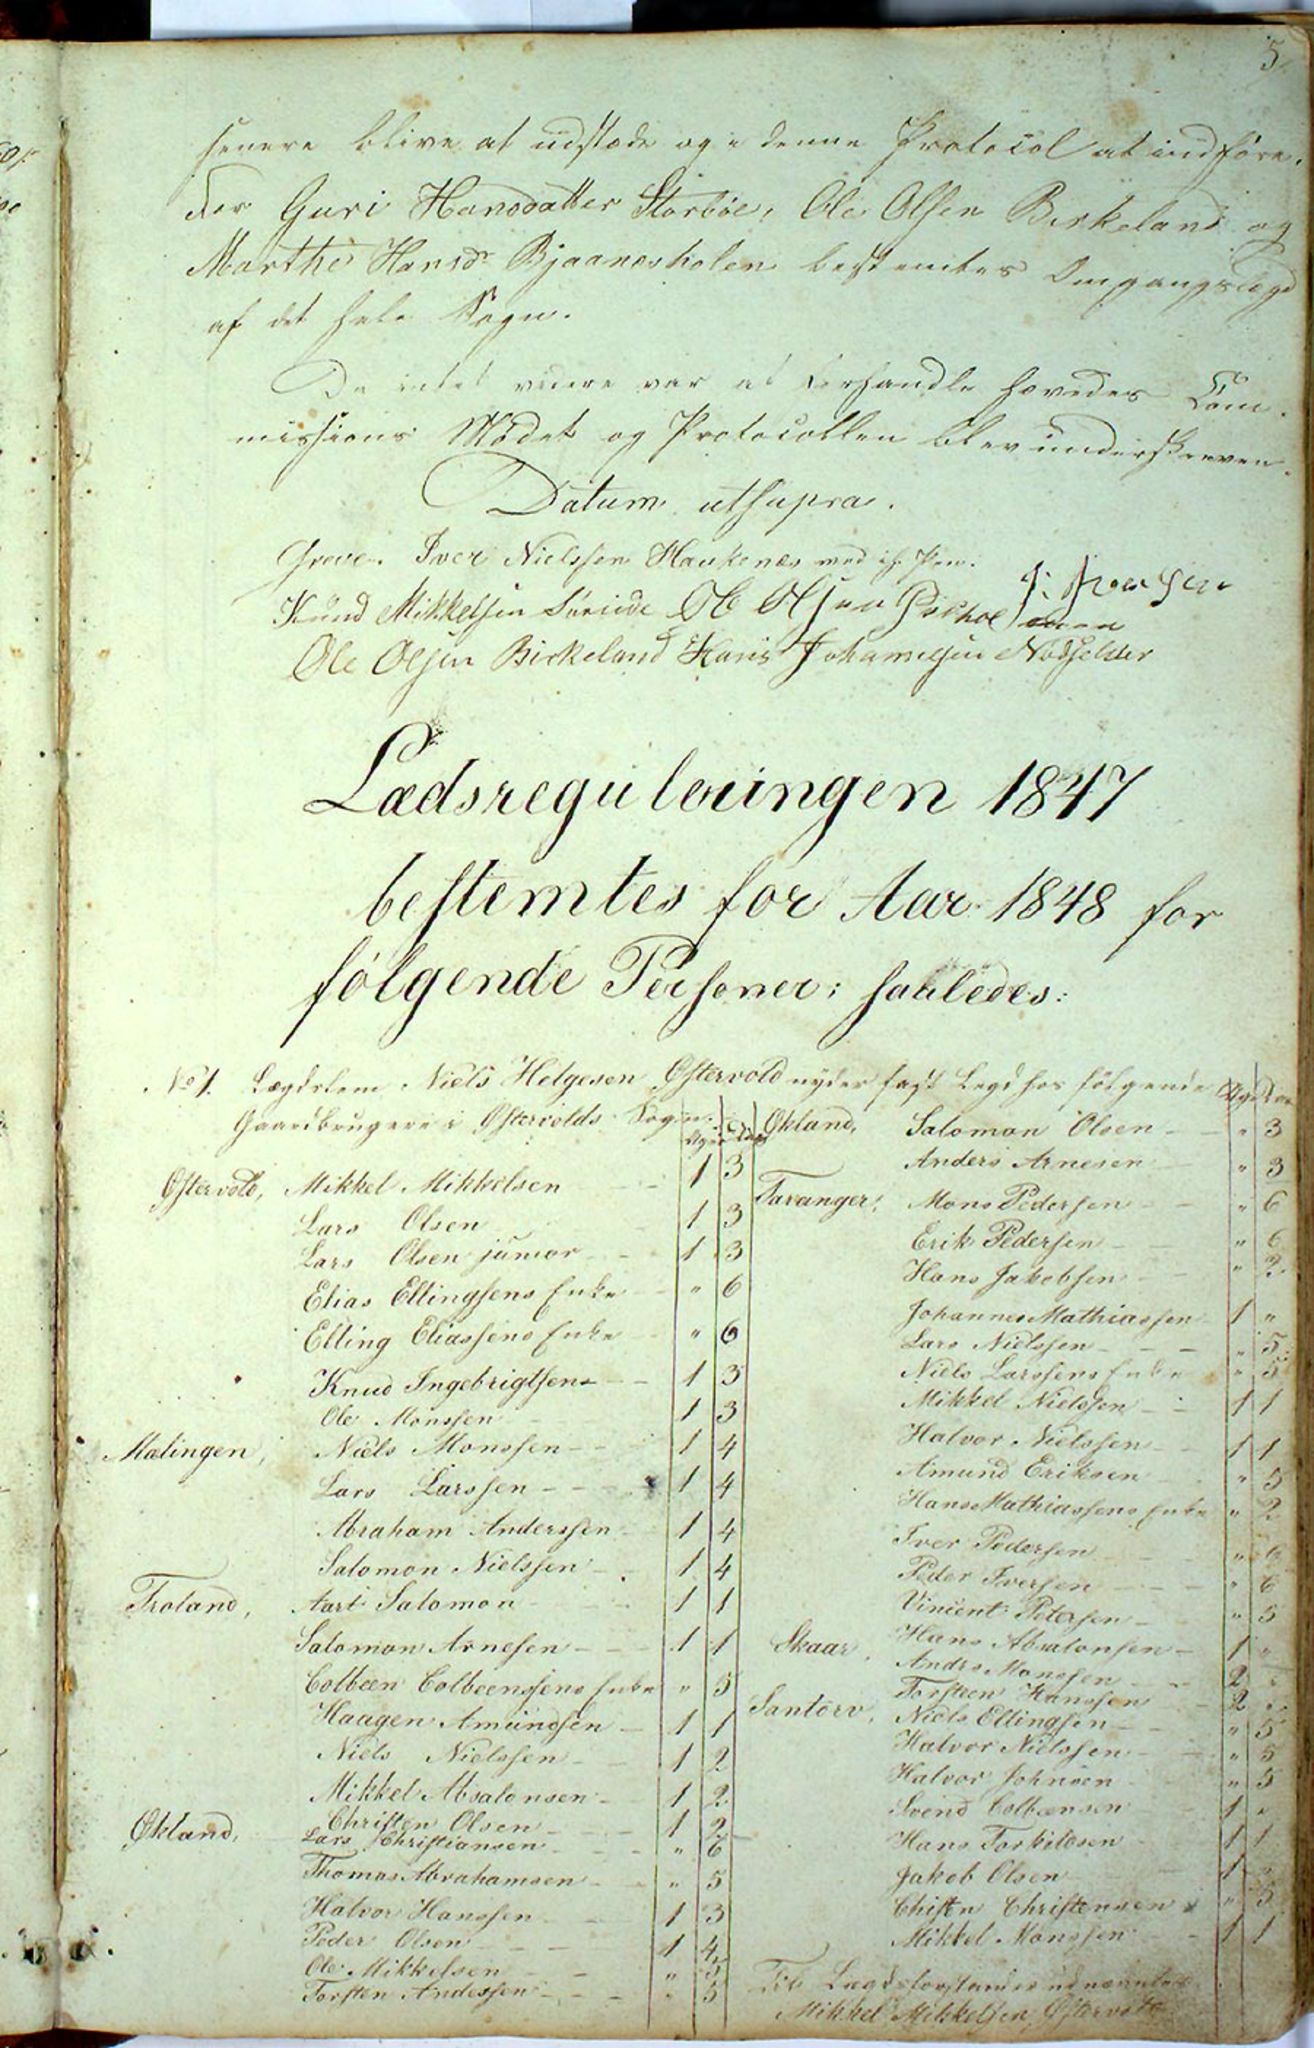 5
senere blive at udstæde og i denne Protocol at indføre.
For Guri Hansdatter Storbøe, Ole Olsen Birkeland og
Marthe Hansdr Bjaanesholen bestemtes Omgangslægd
af det hele Sogn.
Da intet videre var at forhandle hævedes Com-
missions Mødet og Protocollen blev underskreven.
Datum utsupra.
Greve. Iver Nielssen Haukenæs med ih. Pen.
Knud Mikkelsen Ole Olsen
Ole Olsen Birkeland Hans Johannesen
Lædsreguleringen 1847
bestemtes for Aar 1848 for
følgende Personer; saaledes:
No 1. Lægdslem Niels Helgesen Østervold nyder fast Legd hos følgende Uger Dage
Gaardbrugere i Østervolds Sogn.
Uger Dage
Østervold, Mikkel Mikkelsen 1 3
Lars Olsen 1 3
Lars Olsen junior 1 3
Elias Ellingsens Enke " 6
Elling Eliassens Enke " 6
Knud Ingebrigtsen 1 3
Ole Monssen 1 3
Mælingen, Niels Monssen 1 4
Lars Larssen 1 4
Abraham Anderssen 1 4
Salomon Nielssen 1 4
Troland, Aart Salomon 1 1
Salomon Arnesen 1 1
Colbeen Colbeenssens Enke " 5
Haagen Amundsen 1 1
Niels Nielssen 1 2
Mikkel Absalonsen 1 2
Økland, Christen Olsen 1 2
Lars Christiansen " 6
Thomas Abrahamsen " 5
Halvor Hanssen 1 3
Peder Olsen 1 4
Ole Mikkelsen " 5
Torsten Andessen " 5
Økland, Salomon Olsen " 3
Anders Arnesen " 3
Tavanger, Mons Pedersen " 6
Erik Pedersen " 6
Hans Jakobsen " 2
Johannes Mathiassen 1 "
Lars Nielssen " 5
Niels Larssens Enke " 5
Mikkel Nielssen 1 1
Halvor Nielssen 1 1
Amund Eriksen " 5
Hans Mathiassens Enke " 2
Iver Pedersen " 6
Peder Iversen " 6
Vincent Petersen " 5
Skaar, Hans Absalonsen 1 "
Andrs Monssen 2
Torsteen Hanssen 2 "
Santorv, Niels Ellingsen " 5
Halvor Nielssen " 5
Halvor Johnsen " 5
Svend Colbensen 1 "
Hans Torkildsen 1 1
Jakob Olsen 1 "
Chistn Christensen " 5
Mikkel Monssen 1 1
Til Lægdsforstander udnævntes
Mikkel Mikkelsen Østervold